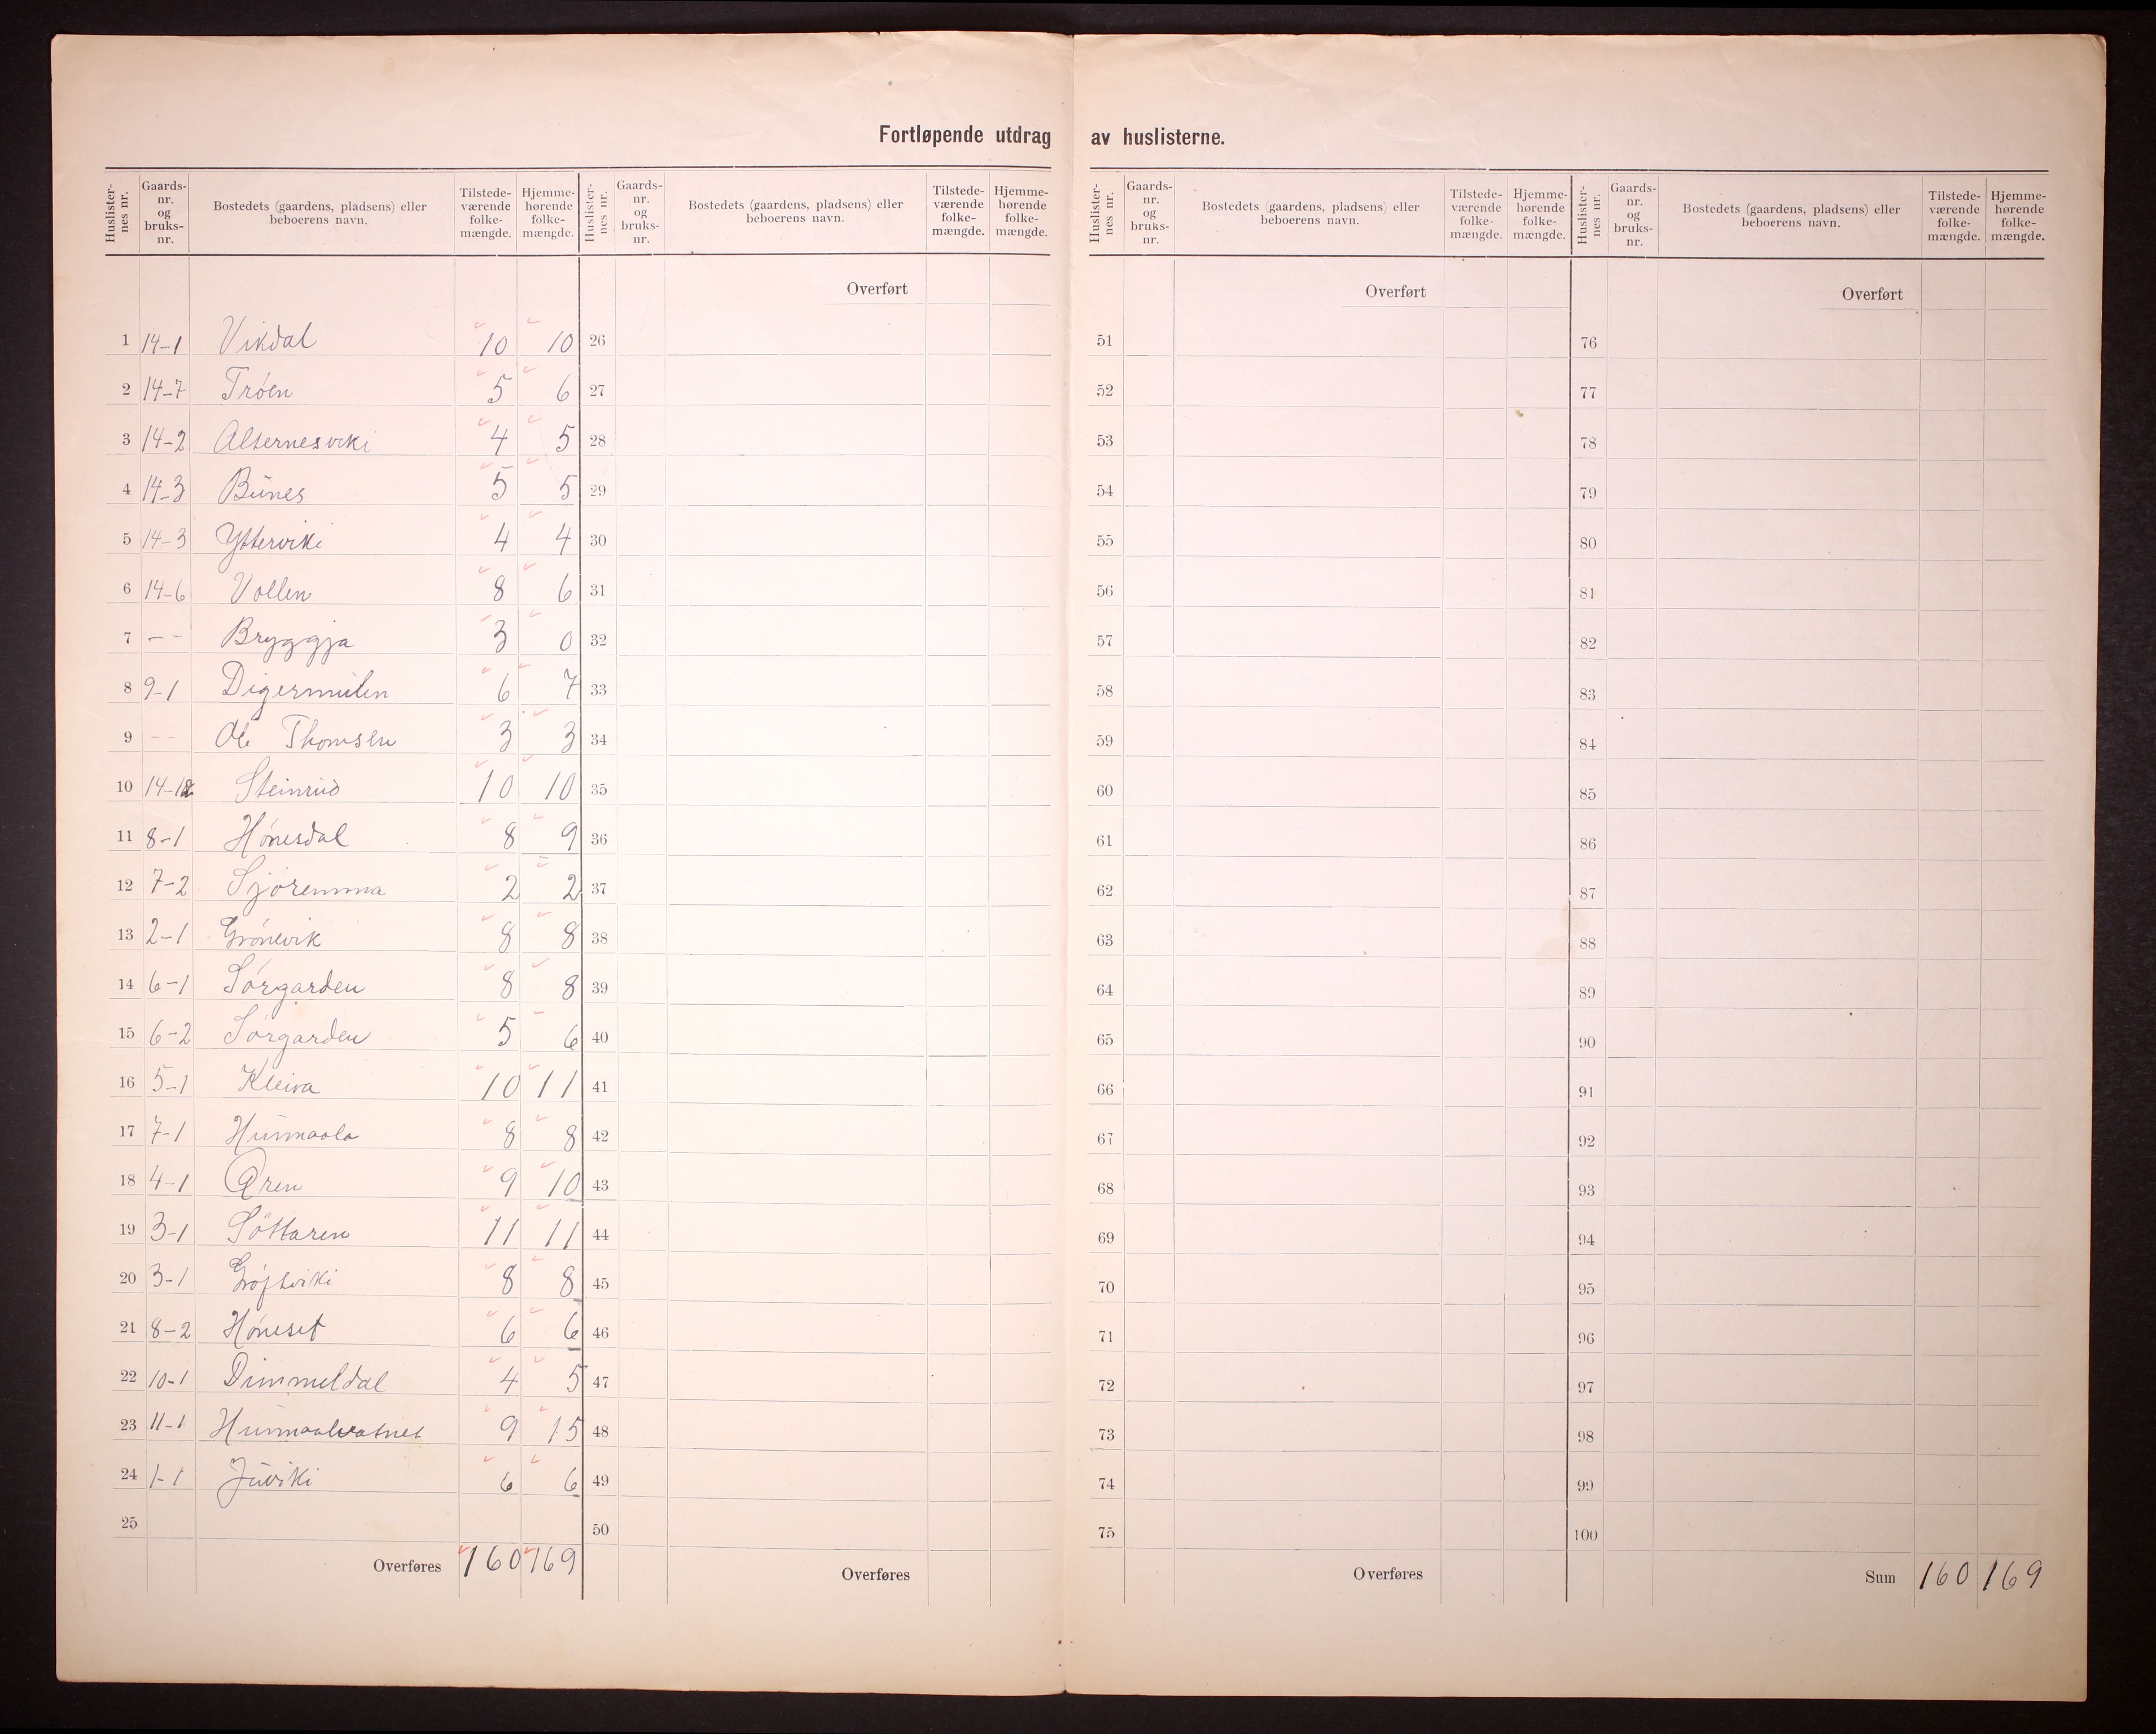 Fortløpende utdrag av huslisterne.
Huslisternes nr. | Gaards-nr. og bruks-nr. | Bostedets (gaardens, pladsens) eller beboerens navn. | Tilstede-værende folke-mængde. | Hjemme-hørende folke-mængde.
1 14-1 Vikdal 10 10
2 14-7 Trøen 5 6
3 14-2 Alternesviki 4 5
4 14-3 Bunes 5 5
5 14-3 Ytterviki 4 4
6 14-6 Vollen 8 6
7 - - Bryggja 3 0
8 9-1 Digermulen 6 7
9 - - Ole Thomsen 3 3
10 14-12 Steinrud 10 10
11 8-1 Hønesdal 8 9
12 7-2 Sjøremma 2 2
13 2-1 Grønevik 8 8
14 6-1 Sørgarden 8 8
15 6-2 Sørgarden 5 6
16 5-1 Kleiva 10 11
17 7-1 Hunmaala 8 8
18 4-1 Øren 9 10
19 3-1 Søttaren 11 11
20 3-1 8 8
21 8-2 Høneset 6 6
22 10-1 Dimmeldal 4 5
23 11-1 Hunmaalvatnet 9 15
24 1-1 Juviki 6 6
25
Overføres 160 169
Huslisternes nr. | Gaards-nr. og bruks-nr. | Bostedets (gaardens, pladsens) eller beboerens navn. | Tilstede-værende folke-mængde. | Hjemme-hørende folke-mængde.
Overført
26
27
28
29
30
31
32
33
34
35
36
37
38
39
40
41
42
43
44
45
46
47
48
49
50
Overføres
Huslisternes nr. | Gaards-nr. og bruks-nr. | Bostedets (gaardens, pladsens) eller beboerens navn. | Tilstede-værende folke-mængde. | Hjemme-hørende folke-mængde.
Overført
51
52
53
54
55
56
57
58
59
60
61
62
63
64
65
66
67
68
69
70
71
72
73
74
75
Overføres
Huslisternes nr. | Gaards-nr. og bruks-nr. | Bostedets (gaardens, pladsens) eller beboerens navn. | Tilstede-værende folke-mængde. | Hjemme-hørende folke-mængde.
Overført
76
77
78
79
80
81
82
83
84
85
86
87
88
89
90
91
92
93
94
95
96
97
98
99
100
Sum 160 169